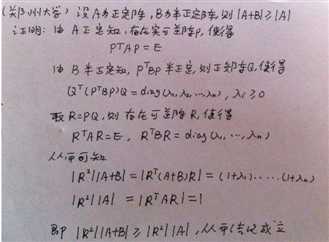 (郑州大学) 设A为正定阵,B为半正定阵,则 |A+B|≥|A|
证明: 由 A正定知,存在实可逆阵P,使得
PTAP=E
由 B半正定知, PTBP半正定,则正交阵Q,使得
QT(PTBP)Q=diag(λ1,λ2,…,λn), λi≥0
取 R=PQ,则 存在可逆阵R,使得
RTAR=E, RTBR=diag(λ1,…λn)
从而可知
|R²||A+B|=|RT(A+B)R|=(1+λ1)……(1+λn)
|R²||A| =|RTAR|=1
即 |R²||A+B|≥|R²||A|,从而结论成立